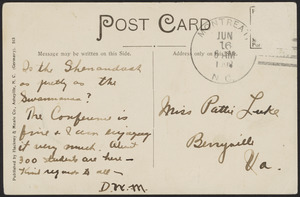 POST CARD
Message may be written on this Side.
MONTREAT
JUN
16
8 AM
N.C.
Is the Shenandoah
as pretty as the
Swannanoa?
The Conference is
fine & I am enjoying
it very much. About
300 students are here -
Kind regards to all -
D.W.M.
Miss Pattie Luke
Berryville
Va.
Published by Hackney & Moale Co., Asheville, N. C. (Germany).